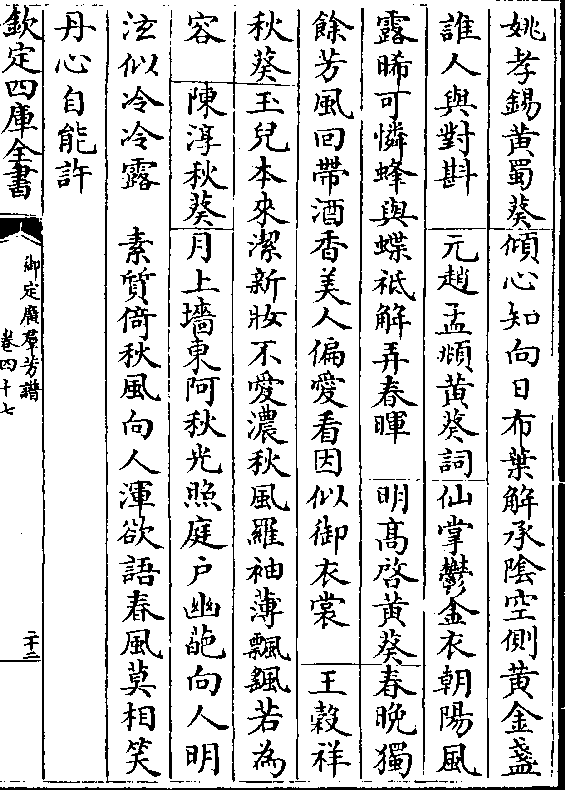 姚孝錫黄蜀葵傾心知向日布葉解承陰空側黄金盞
誰人與對斟　元趙孟頫黄葵詞仙掌鬱金衣朝陽風
露晞可憐蜂與蝶祗解弄春暉　明髙啓黄葵春晚獨
餘芳風回帶酒香美人偏愛看因似御衣裳　王穀祥
秋葵玉兒本來潔新妝不愛濃秋風羅袖薄飄颻若為
容　陳淳秋葵月上墻東阿秋光照庭户幽葩向人明
泫似冷冷露　素質倚秋風向人渾欲語春風莫相笑
丹心自能許
欽定四庫全書
御定廣羣芳譜
卷四十七
二十二